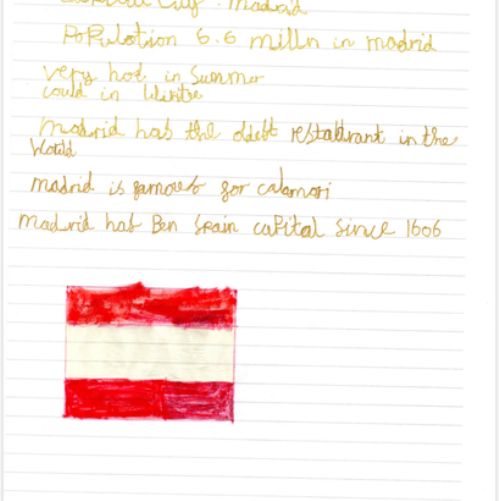 City : Madrid
PoPulation 6.6 milln in madrid
very hot in Summer
could in Wintre
Madrid has the oldest restaurant in the
World
madrid is famous for calamari
madrid has Ben Spain caPital since 1606